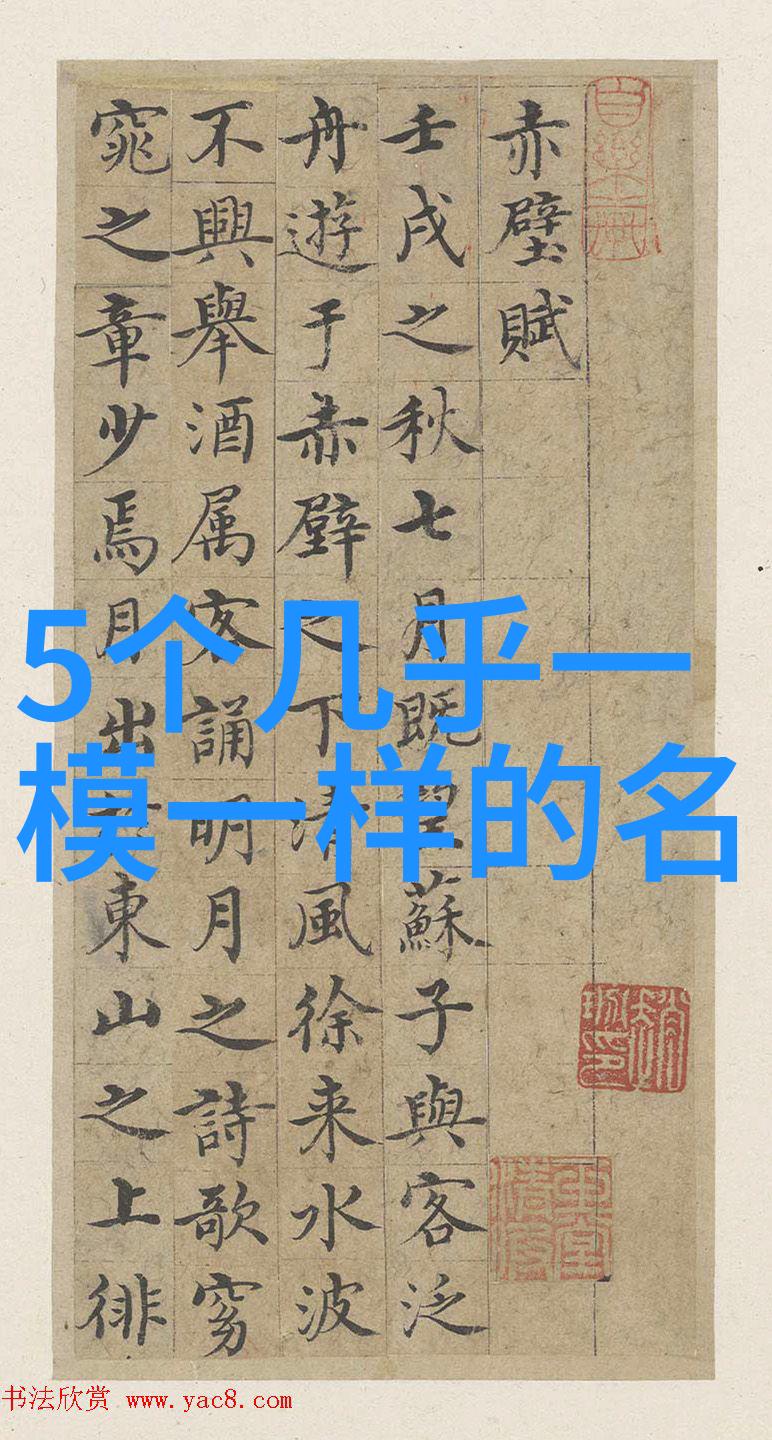 赤壁賦
壬戌之秋七月既望蘇子與客泛
舟遊于赤壁之下清風徐来水波
不興舉酒属客誦明月之詩歌窈
窕之章少焉月出東山之上徘
5个几乎一
模一样的名
书法欣赏 www.yac8.com